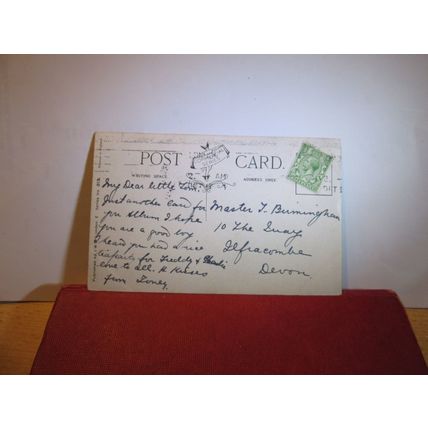 POST CARD.
WRITING SPACE
ADDRESS ONLY
My Dear little Tom
Just another Card for
you Album I hope
you are a good boy
I heard you had a nice
teaparty for Freddy &
love to all. & Kisses
from
Master T. Birmingham
10 The Quay
Ilfracombe
Devon.